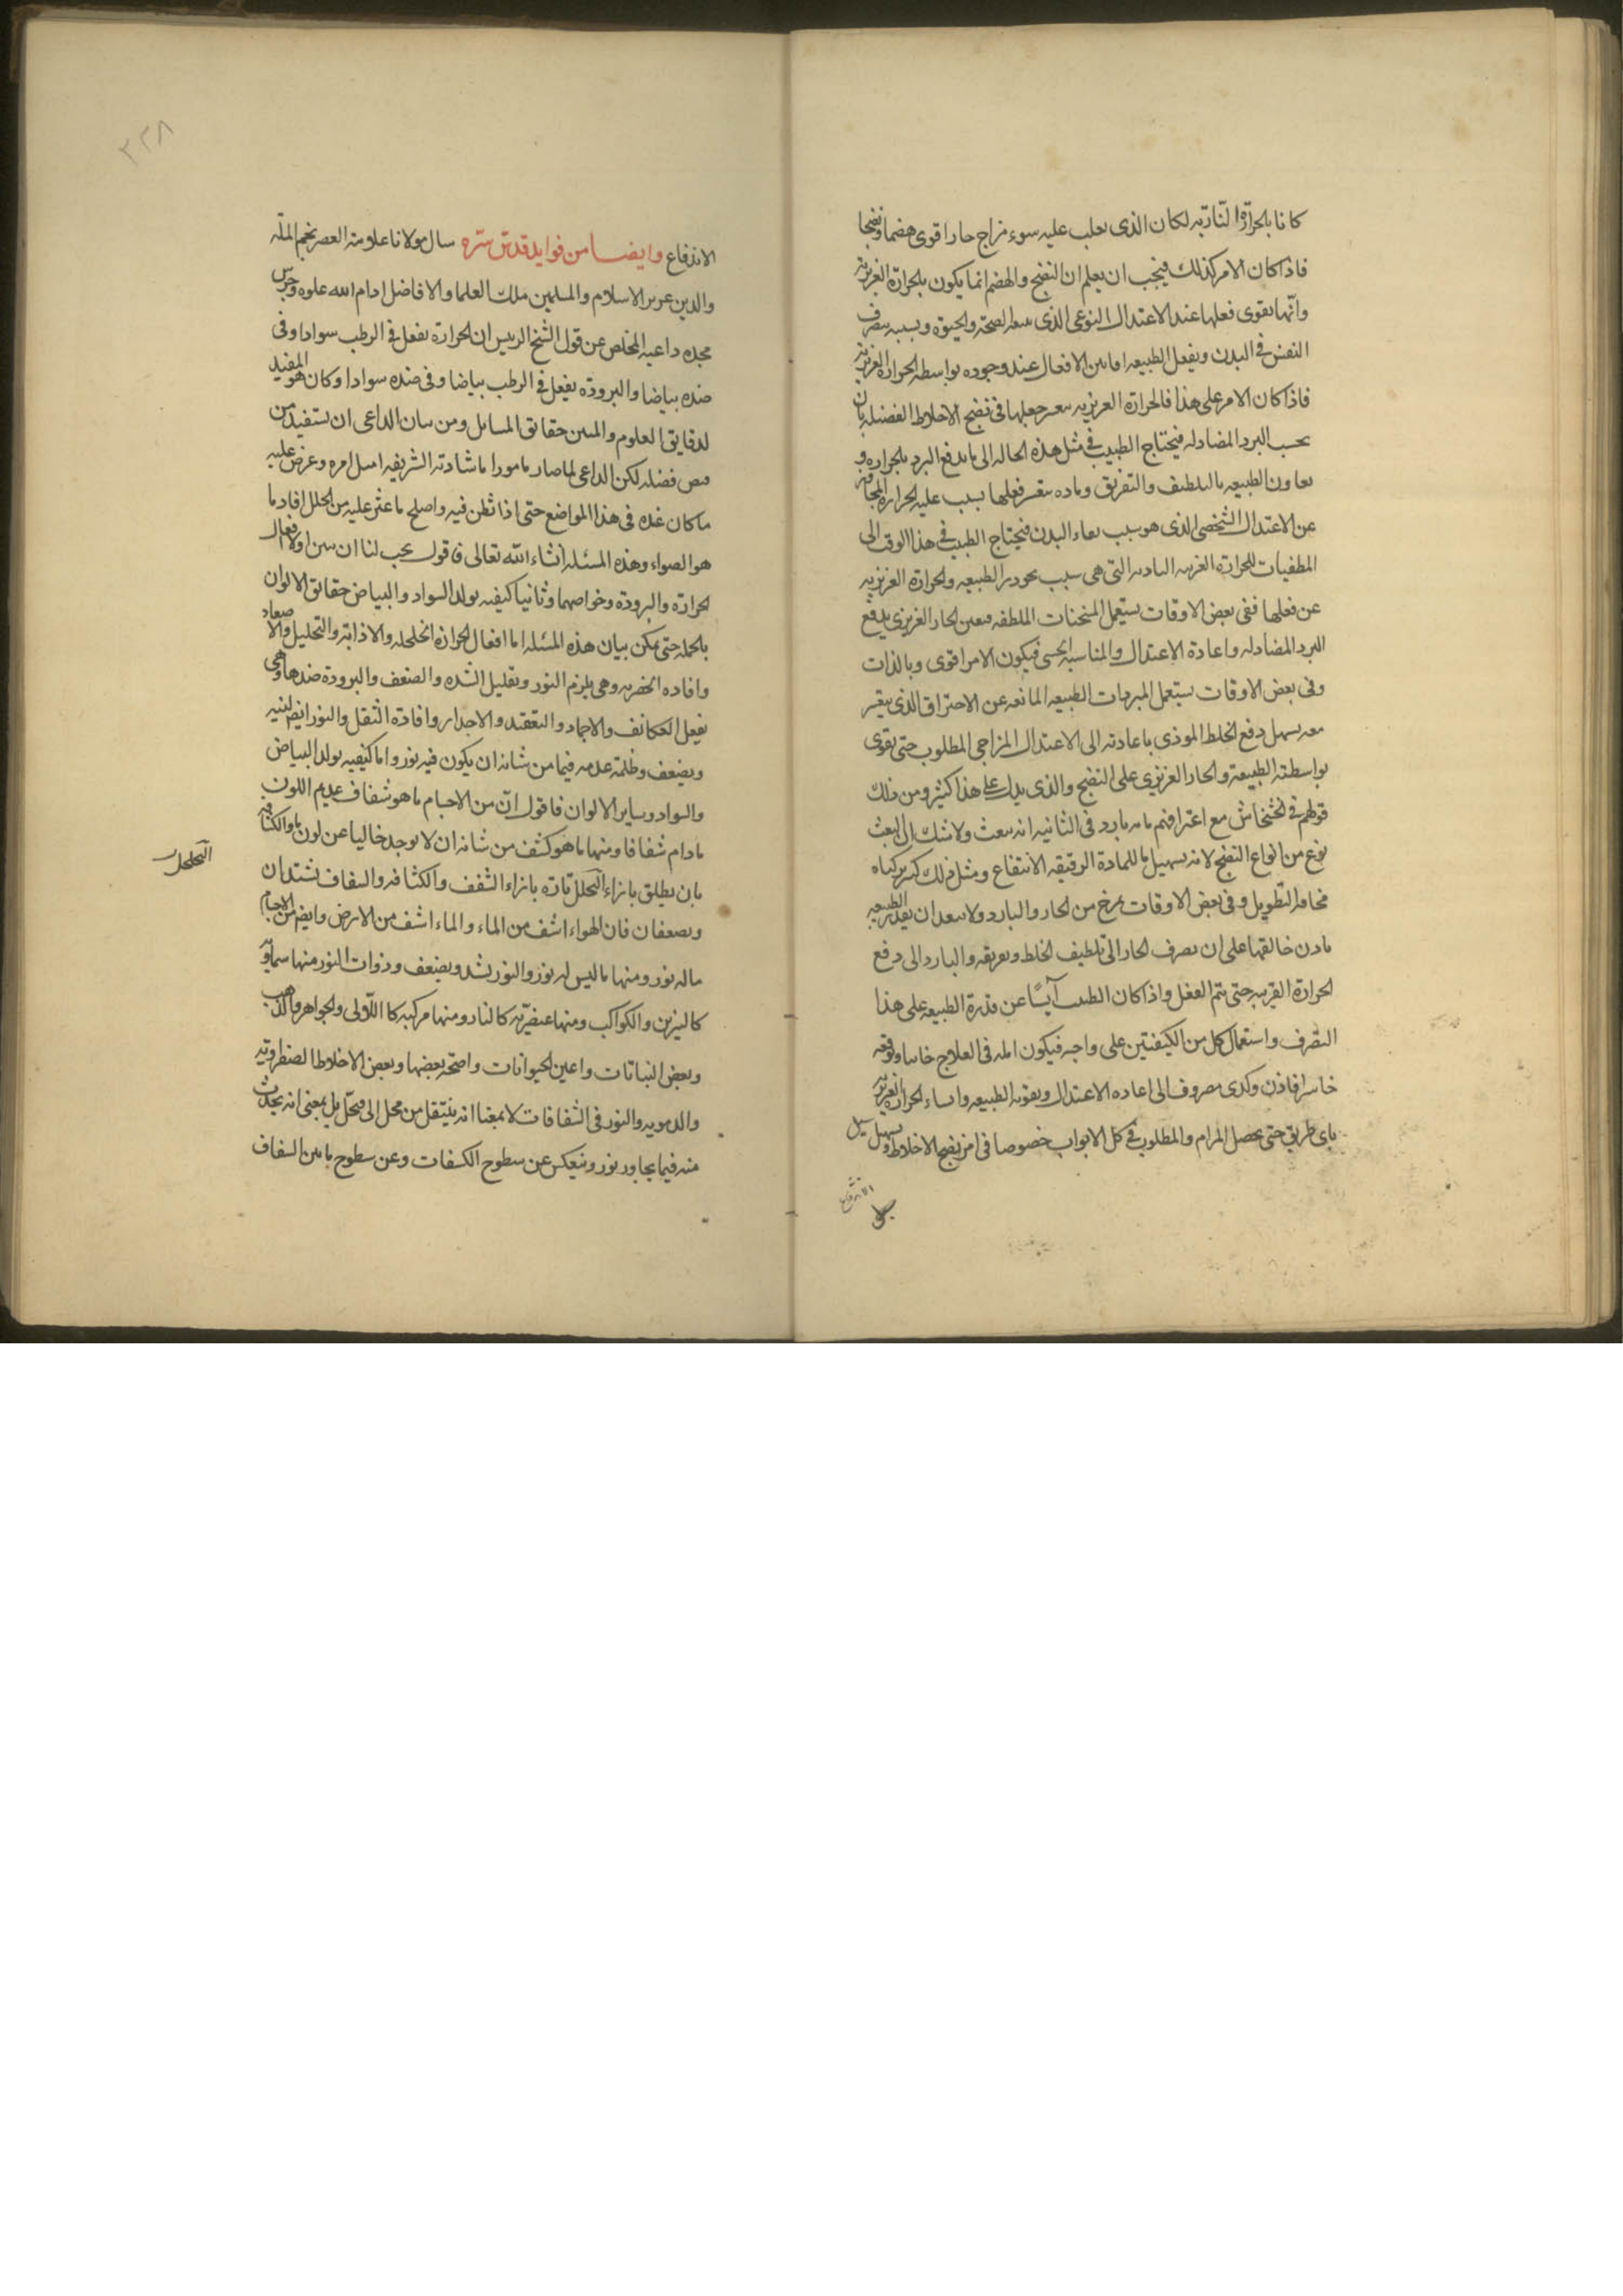 كانا بالحرارة النارّية لكان الذى يغلب عليه سوء مزاج حار اقوى هضما ونضجا
فاذا كان الامر كذلك فيجب ان يعلم ان النضج والهضم انما يكون بالحرارة الغريزية
وانّها يقوى فعلها عند الاعتدال النوعى الذى الصحة والحيوة وبسببه يتصرف
النفس فى البدن ويفعل الطبيعه الافعال عند وجوده بواسطه الحرارة الغريزية
فاذا كان الامر على هذا فالحرارة الغريزيه فعلها فى نضج الاخلاط الفضليه
بحسب البرد المضاد له فيحتاج الطبيب فى مثل هذه الحاله الى ما يدفع البرد بالحرارة و
يعاون الطبيعه بالتلطيف والتفريق وتاره يتعسر فعلها بسبب عليه الحرارة
عن الاعتدال الشخصى الذى هو سبب بقاء البدن فيحتاج الطبيب فى هذا الوقت الى
المطفيات للحرارة الغريبه التى هى سبب الطبيعه والحرارة الغريزيه
عن فعلها ففى بعض الاوقات يستعمل المسخنات الملطفه فيعين الحار الغريزى بدفع
البرد المضاد له واعادة الاعتدال والمناسبه فيكون الامر اقوى وبالذات
وفى بعض الاوقات يستعمل المبردات الطبيعه المانعه عن الاحتراق الذى يتغير
معه يسهل دفع الخلط الموذى باعادته الى الاعتدال المزاجى المطلوب حتى يقوى
بواسطته الطبيعة والحار الغريزى على النضج والذى يدل على هذا كثير ومن ذلك
قولهم فى الخشخاش مع اعترافهم بانه بارد فى الثانيه انه ولا شك ان
نوع من انواع النضج لانه تسهيل ما للمادة الرقيقه الانتفاع ومثل ذلك
مخافة التطويل وفى بعض الاوقات يمزج من الحار والبارد ولا يبعد ان يقدر الطبيعه
باذن خالقها على ان يصرف الحار الى تلطيف الخلط وتفريقه والبارد الى دفع
الحرارة الغريبه حتى يتم الفعل واذا كان الطبيب آيسًا عن قدرة الطبيعه على هذا
التصّرف واستعمال كل من الكيفيتين على واجبه فيكون امله فى العلاج خايبا
خاسرا فاذن وكدى مصروف الى اعاده الاعتدال وتقويه الطبيعه الحرارة الغريزيه
باى طريق حتى يحصل المرام والمطلوب فى كل الابواب خصوصا فى امر نضج الاخلاط وتسهيل سبيل
الاندفاع
٣٣٨
الاندفاع وايضا من فوايد قدس سّره سال مولانا علامة العصر نجم الملّه
والدين الاسلام والمسلمين ملك العلما والافاضل ادام الله علوه وحرس
مجده داعيه المخلص عن قول الشيخ الرييس ان الحرارة يفعل فى الرطب سوادا وفى
ضده بياضا والبرودة يفعل فى الرطب بياضا وفى ضده سوادا وكان هو المفيد
لدقايق العلوم حقايق المسايل ومن شان الداعى ان يستفيد من
فضله لكن الداعى لما صار مامورا باشارته الشريفه امتثل امره وعرض عليه
ما كان عنده فى هذا المواضع حتى اذا نظر فيه واصلح ما عثر عليه من الخلل افاد ما
هو الصواب وهذه المسئله انشاء الله تعالى فاقول يجب لنا ان نبين اولا افعال
الحرارة والبرودة وخواصهما وثانيا كيفيه تولد السواد والبياض حقائق الالوان
بالجمله حتى يمكن بيان هذه المسئله اما افعال الحرارة التخلخله والاذابة والتحليل والاصعاد
وافاده وهى يلزم النور وتقليل الشده والضعف والبرودة ضدها وهى
يفعل التكاثف والاجماد والتعقيد والاحدار وافادة الثقل والنور ايضا
ويضعف وظلمة عدمه فيما من شانه ان يكون فيه نور واما كيفيه تولد البياض
والسواد وساير الالوان فاقول انّ من الاجسام ما هو شفاف عديم اللون
مادام شفافا ومنها ما هو كثيف من شانه ان لا يوجد خاليا عن لون ما والكثافه
بان يطلق بازاء التحلل تارة بازاء الشفف والكثافه والشفاف تشتدان
وتضعفان فان الهواء اشف من الماء والماء اشف من الارض وايضا من الاجسام
ماله نور ومنها ما ليس له نور والنور يشتد ويضعف وذوات النور منها سماوّيه
كالنيرين والكواكب ومنها عنصرّيه كالنار ومنها مركبه كاللآلى والجواهر والذهب
وبعض النباتات واعين الحيوانات واضحة بعضها وبعض الاخلاط الصفراويه
والدمويه والنور فى الشفافات لا بمعنا انه ينتقل من محل الى محلّ بل بمعنى انه يحدث
منه فيما يجاور نور وينعكس عن سطوح الكثيفات وعن سطوح ما بين الشفاف
التخلخل